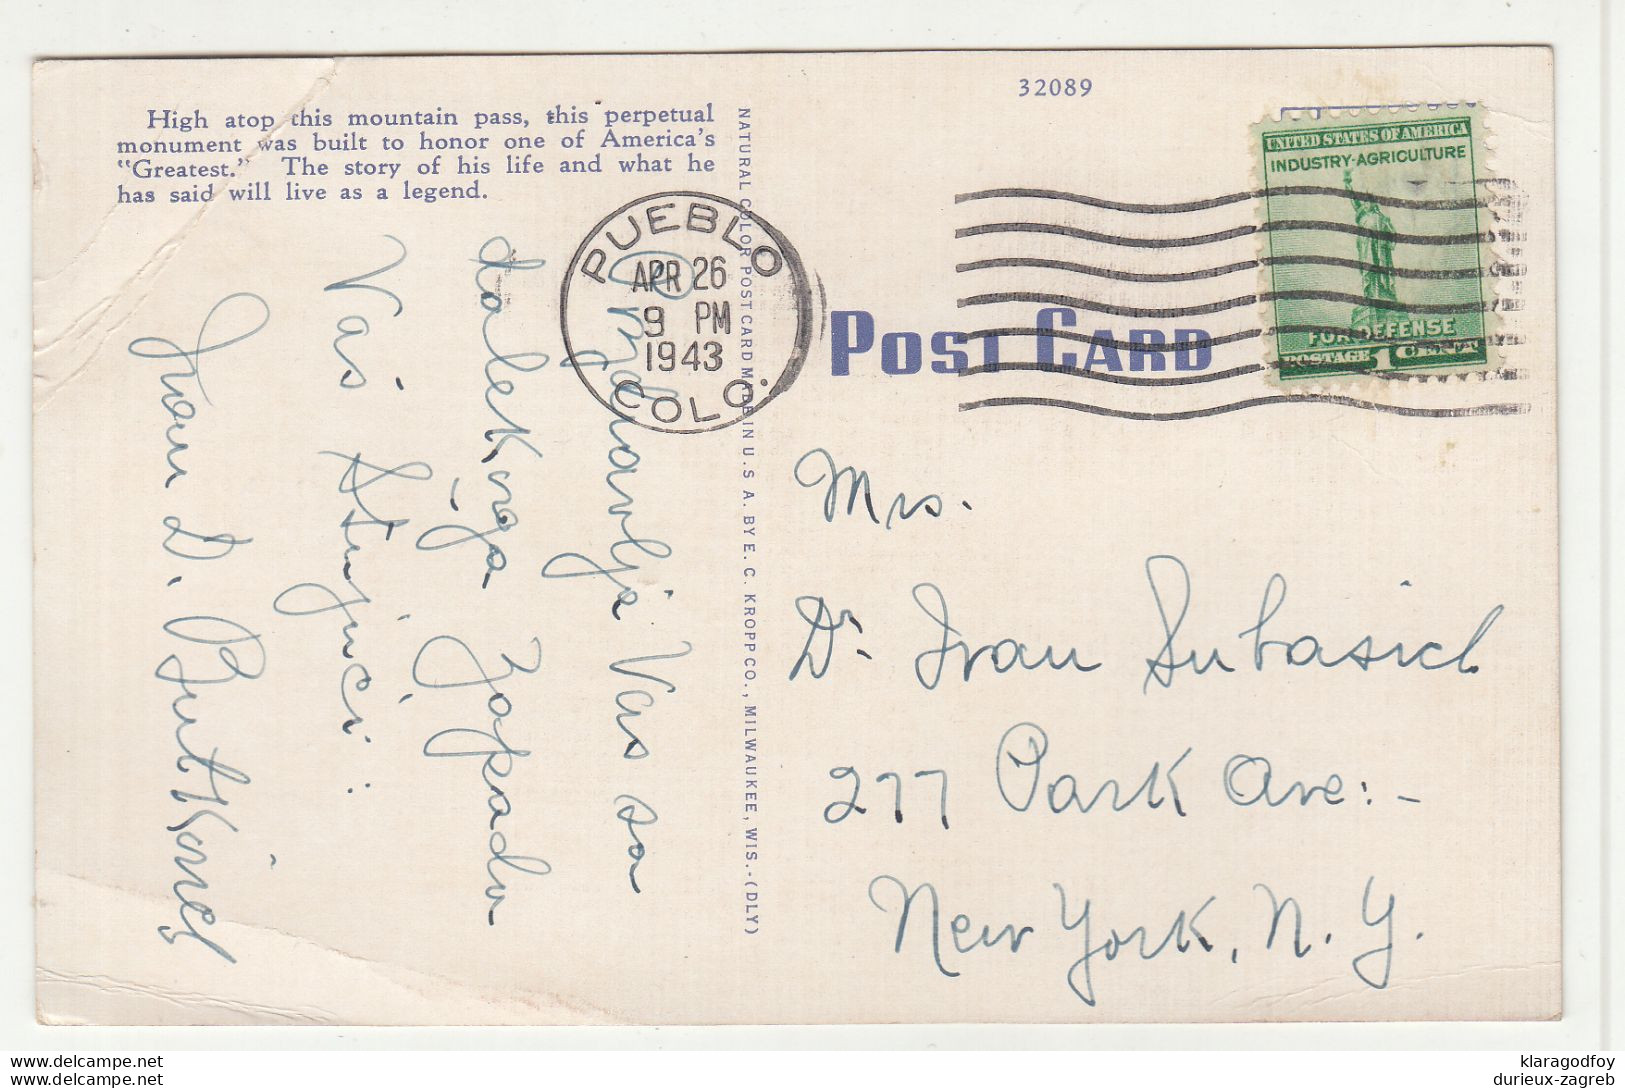 32089
High atop this mountain pass, this perpetual
monument was built to honor one of America's
"Greatest." The story of his life and what he
has said will live as a legend.
NATURAL COLOR POST CARD MADE IN U.S.A. BY E. C. KROPP CO., MILWAUKEE, WIS.-(DLY)
PUEBLO
APR 26
9 PM
1943
COLO.
POST CARD
UNITED STATES OF AMERICA
INDUSTRY-AGRICULTURE
FOR DEFENSE
POSTAGE 1 CENT
Pozdravlja Vas sa
dalekoga Zapada
Vaš
Ivan D. Butković
Mrs.
Dr. Ivan Subasich
277 Park Ave:-
New York, N. Y.
delcampe.net
delcampe.net
klaragodfoy
durieux-zagreb